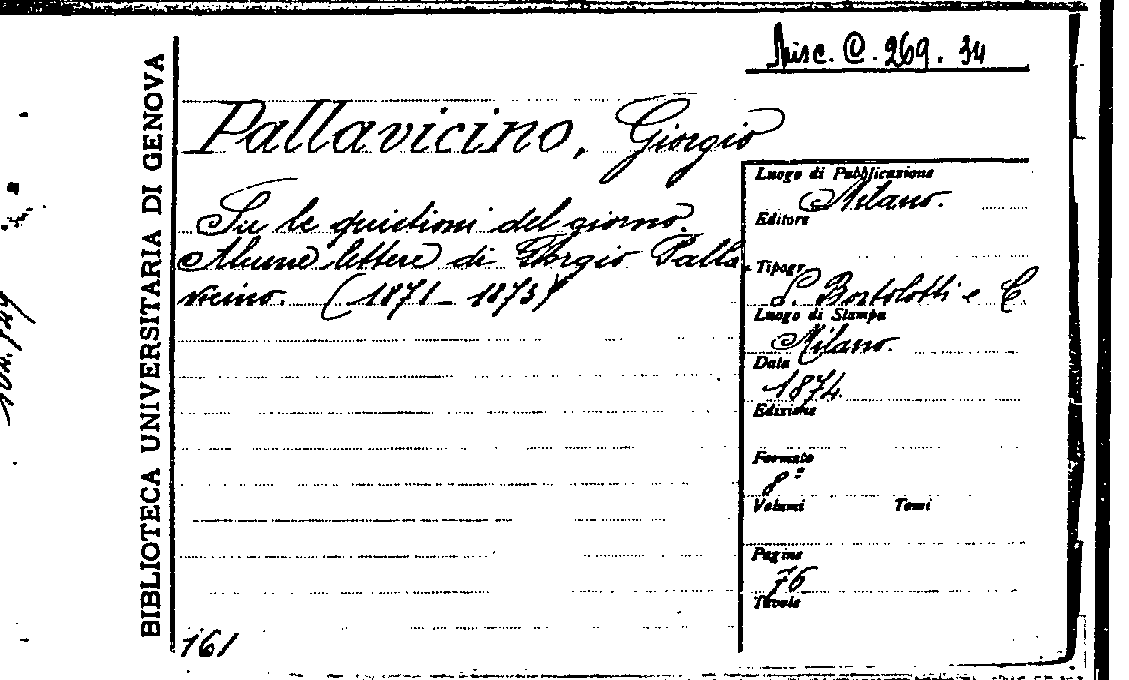 Misc. C. 269. 34
BIBLIOTECA UNIVERSITARIA DI GENOVA
Pallavicino, Giorgio
Su le quistioni del giorno.
Alcune lettere di Giorgio Palla-
vicino. (1871-1873)
Luogo di Pubblicazione
Milano.
Editore
Tipogr.
P. Bortolotti e C.
Luogo di Stampa
Milano.
Data
1874.
Edizione
Formato
8º
Volumi Tomi
Pagine
76
Tavole
161